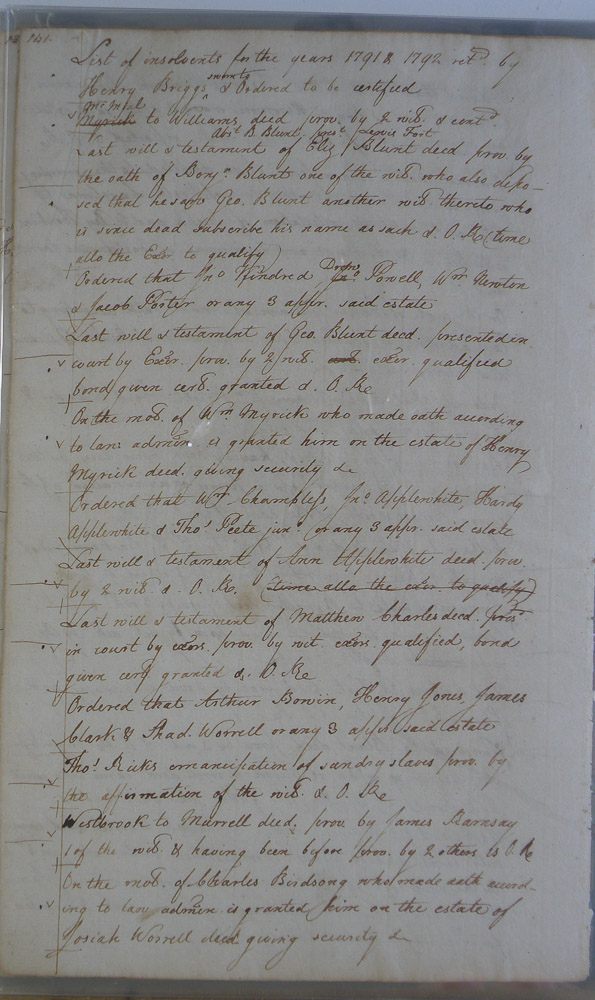 141.
List of insolvents for the years 1791 & 1792 retd. by
Henry Briggs & Ordered to be certified
Myrick to Williams deed prov. by 2 wits. & contd.
Last will & testament of Eliz Blunt decd prov. by
the oath of Benja. Blunt one of the wits. who also depo-
sed that he saw Geo. Blunt another wits thereto who
is since dead subscribe his name as such & O. Re (time
allo the Exer. to qualify)
Ordered that Jno. Kindred Drew Powell, Wm. Newton
& Jacob Porter or any 3 appr. said estate
Last will & testament of Geo. Blunt decd. presented in
court by Exer. prov. by 2 wits. exer. qualified
bond given cert. granted & O. Re
On the mot. of Wm. Myrick who made oath according
to law admin is granted him on the estate of Henry
Myrick decd. giving security &
Ordered that Wm. Chambless, Jno. Applewhite, Hardy
Applewhite & Thos. Peete junr. or any 3 appr. said estate
Last will & testament of Ann Applewhite decd. prov.
by 2 wits & O. Re. (time allo the exer. to qualify)
Last will & testament of Matthew Charles decd. prest.
in court by exors. prov. by wit. exors. qualified, bond
given cert granted & O. Re
Ordered that Arthur Henry Jones, James
Clark & Shad. Worrell or any 3 appr said estate
Thos. Ricks emancipation of sundry slaves prov. by
the affirmation of the wits. & O. Re
Westbrook to Murrell deed, prov. by James Barnsay
1 of the wits & having been before prov. by 2 others is O. Re
On the mot. of Charles Birdsong who made oath accord-
ing to law admin is granted him on the estate of
Josiah Worrell decd giving security &